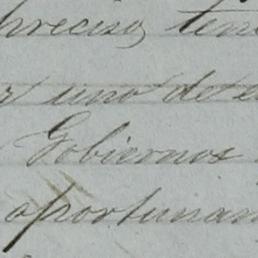 preciso, ten
r uno de e
Gobiernos
oportunam